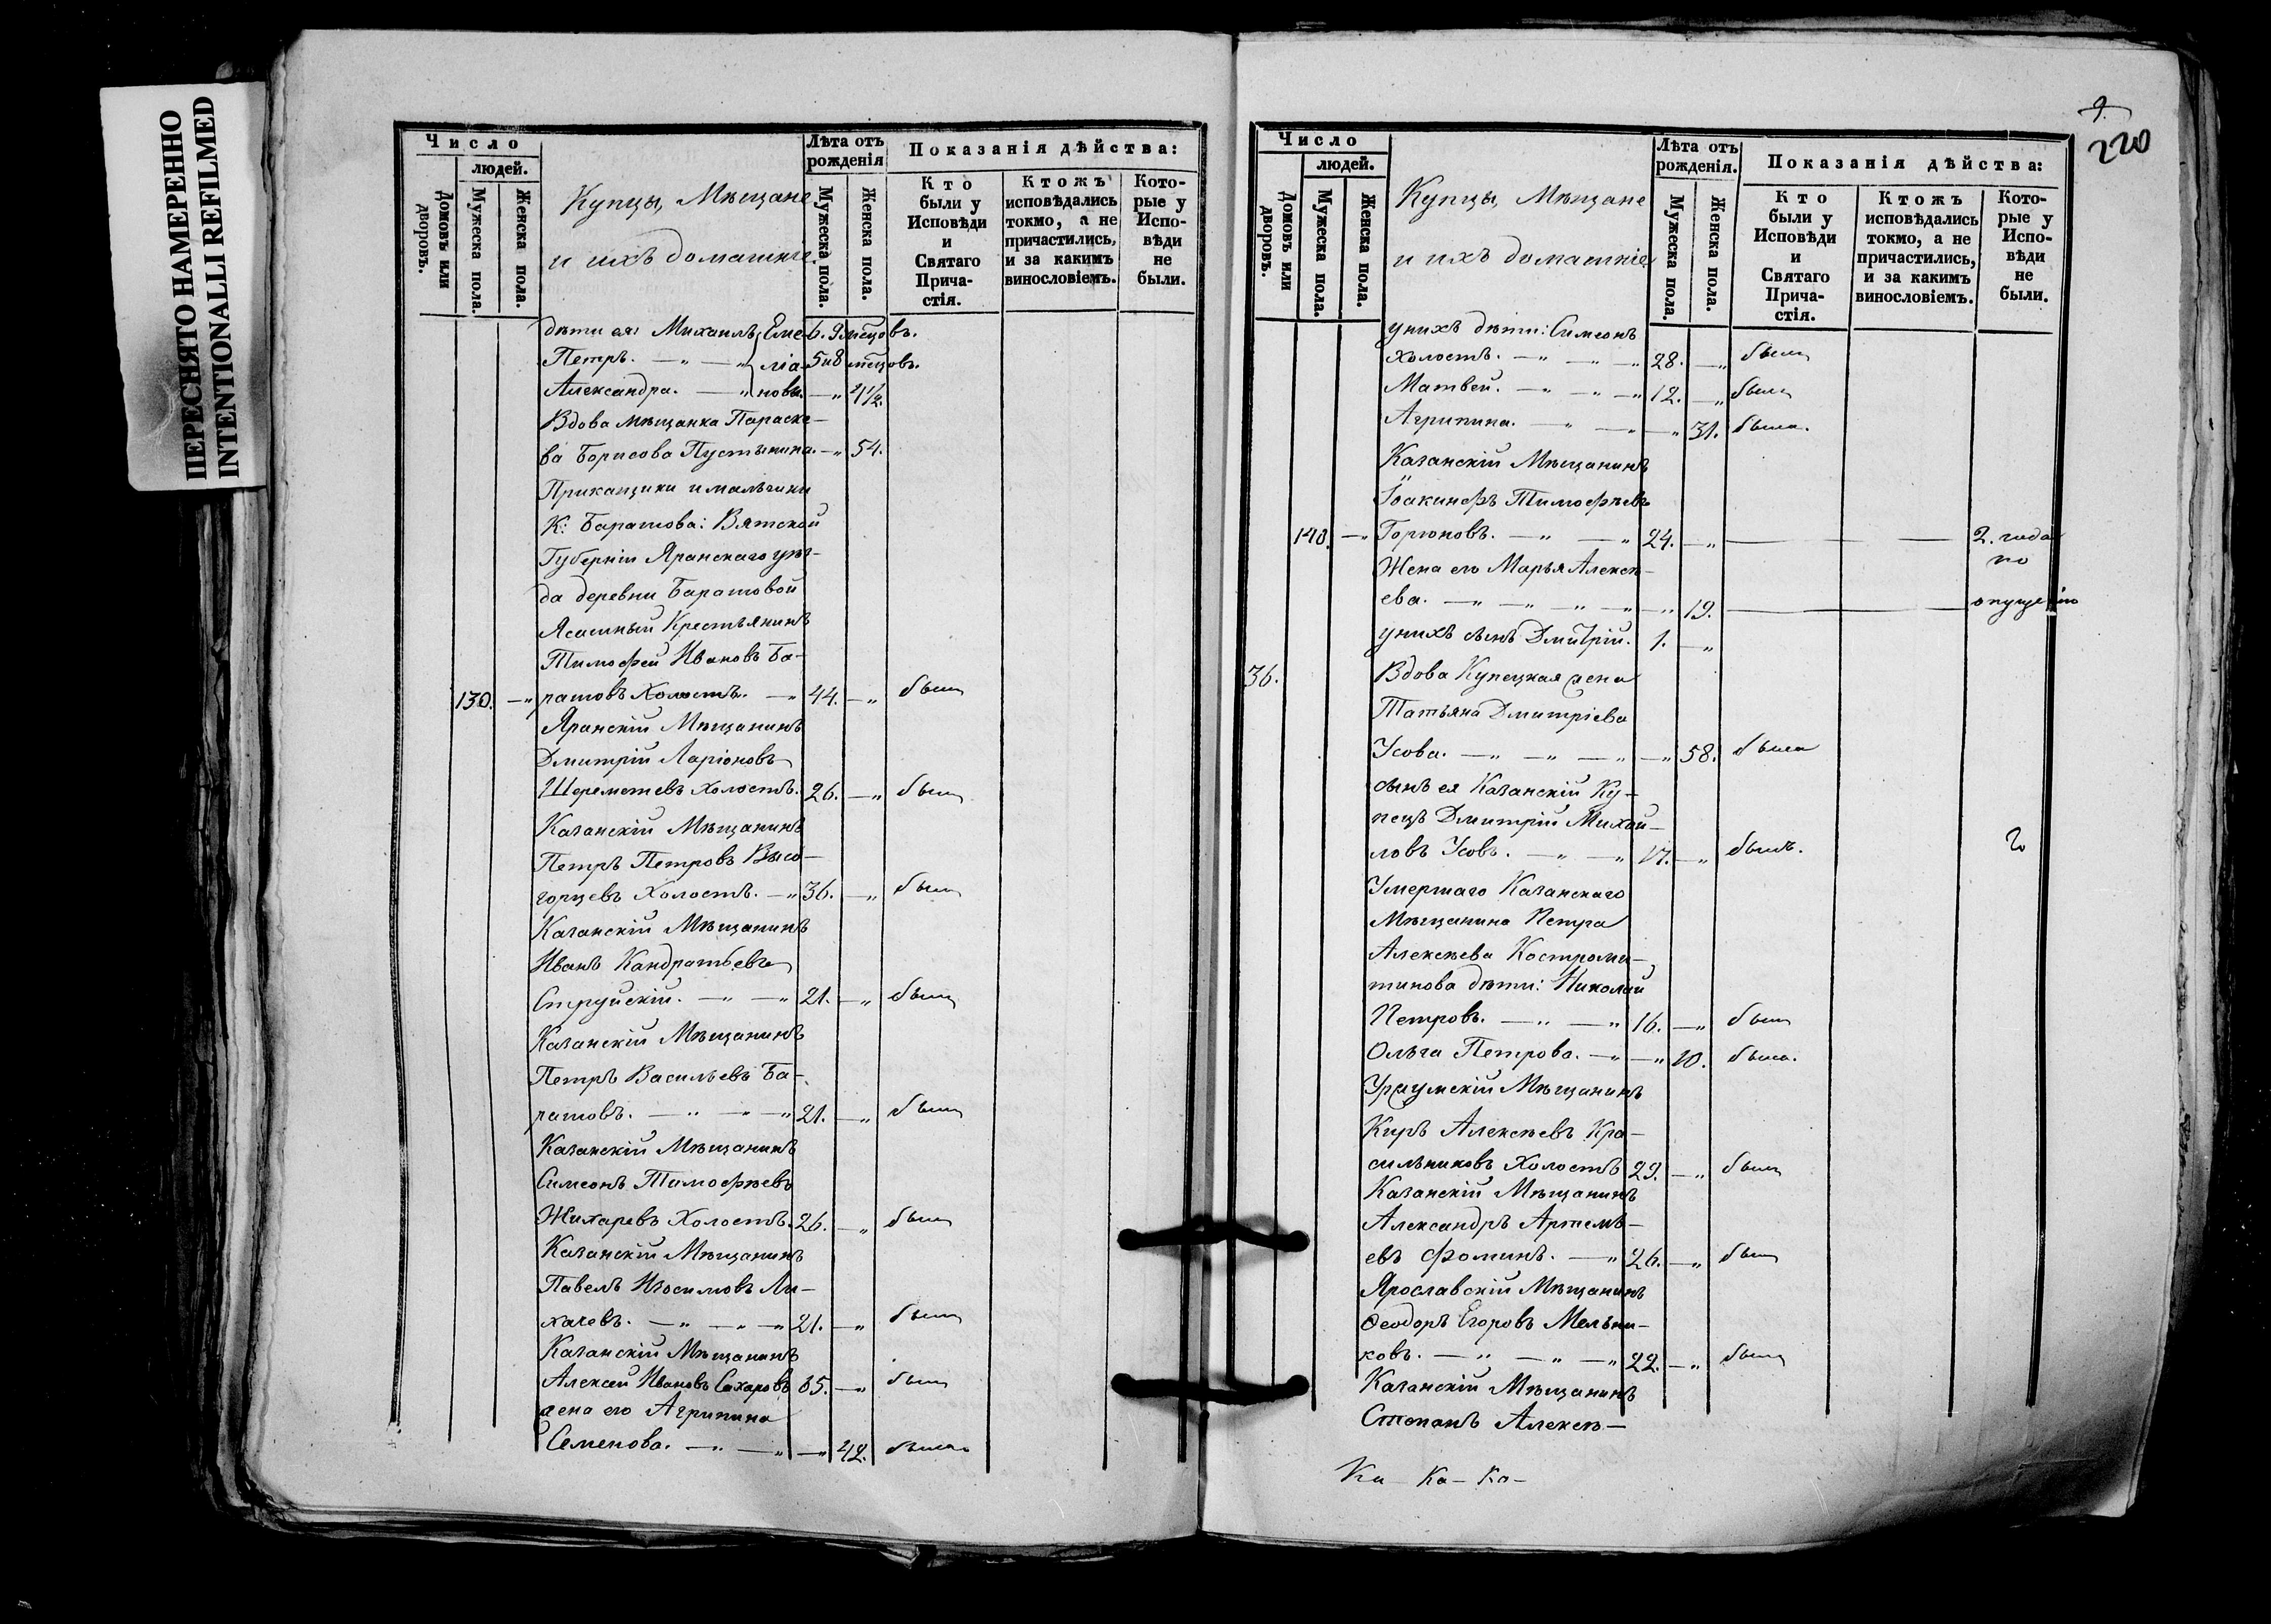 ПЕРЕСНЯТО НАМЕРЕННО
INTENTIONALLI REFILMED
Число
людей.
Домовъ или дворовъ.
Мужеска пола.
Женска пола.
Купцы, Мѣщане
и ихъ домашніе.
Лѣта отъ рожденія
Мужеска пола.
Женска пола.
Показанія дѣйства:
Кто были у Исповѣди и Святаго Прича-стія.
Ктожъ исповѣдались токмо, а не причастились, и за какимъ винословіемъ.
Кото-рые у Испо-вѣди не были.
дѣти ея: Михаилъ Еме- 6.
Петръ. — „ — „ ліа- 5 и 8 мѣсцовъ.
Александра. — „ новы. — „
Вдова мѣщанка Параске-
ва Борисова Пустынина. — „ 54.
Прикащики и мальчики
К: Баратова: Вятской
Губерніи Яранскаго уѣз-
да деревни Баратовой
Ясашный Крестьянинъ
Тимофей Ивановъ Ба-
130. — „ ратовъ Холостъ. — „ 44. — „ былъ
Яранскій Мѣщанинъ
Дмитрій Ларіоновъ
Шереметевъ холостъ. 26. — „ былъ
Казанскій Мѣщанинъ
Петръ Петровъ Высо-
горцевъ Холостъ. — „ 36. — „ былъ
Казанскій Мѣщанинъ
Иванъ Кандратьевъ
Струйскій. — „ — „ 21. — „ былъ
Казанскій Мѣщанинъ
Петръ Васильевъ Ба-
ратовъ. — „ — „ 21. — „ былъ
Казанскій Мѣщанинъ
Симеонъ Тимофѣевъ
Жихаревъ Холостъ. 26. — „ былъ
Казанскій Мѣщанинъ
Павелъ Ли-
хачевъ. — „ — „ — „ 21. — „ былъ
Казанскій Мѣщанинъ
Алексей Ивановъ Сахаровъ — „ былъ
жена его Агрипина
Семенова. — „ — „ — „ 42. была
9.
220
Число
людей.
Домовъ или дворовъ.
Мужеска пола.
Женска пола.
Купцы, Мѣщане
и ихъ домашніе
Лѣта отъ рожденія.
Мужеска пола.
Женска пола.
Показанія дѣйства:
Кто были у Исповѣди и Святаго Прича-стія.
Ктожъ исповѣдались токмо, а не причастились, и за какимъ винословіемъ.
Кото-рые у Испо-вѣди не были.
у нихъ дѣти: Симеонъ
холостъ. — „ — „ 28. — „ былъ
Матвей. — „ — „ 12. — „ былъ
Агрипина. — „ — „ 31. была.
Казанскій Мѣщанинъ
Іоакинфъ Тимофѣевъ
140. — „ Горюновъ. — „ — „ 24. — „ 2. года
по
Жена его Марья Алексѣ-
ева. — „ — „ — „ — „ 19. опущенію
у нихъ сынъ Дмитрій. 1. — „
36. Вдова Купецкая жена
Татьяна Дмитріева
Усова. — „ — „ — „ — „ 58. была
сынъ ея Казанскій Ку-
пецъ Дмитрій Михай-
ловъ Усовъ. — „ — „ 17. — „ былъ.
Умершаго Казанскаго
Мѣщанина Петра
Алексѣева Костроми-
тинова дѣти: Николай
Петровъ. — „ — „ 16. — „ былъ
Ольга Петрова. — „ — „ 10. была.
Уржумскій Мѣщанинъ
Киръ Алексѣевъ Кра-
сильниковъ Холостъ 29. — „ былъ
Казанскій Мѣщанинъ
Александръ Артемь-
евъ Фоминъ. — „ 26. — „ былъ
Ярославскій Мѣщанинъ
Ѳеодоръ Егоровъ Мельни-
ковъ. — „ — „ — „ 22. — „ былъ
Казанскій Мѣщанинъ
Степанъ Алексѣ-
Ка- Ка- Ка-